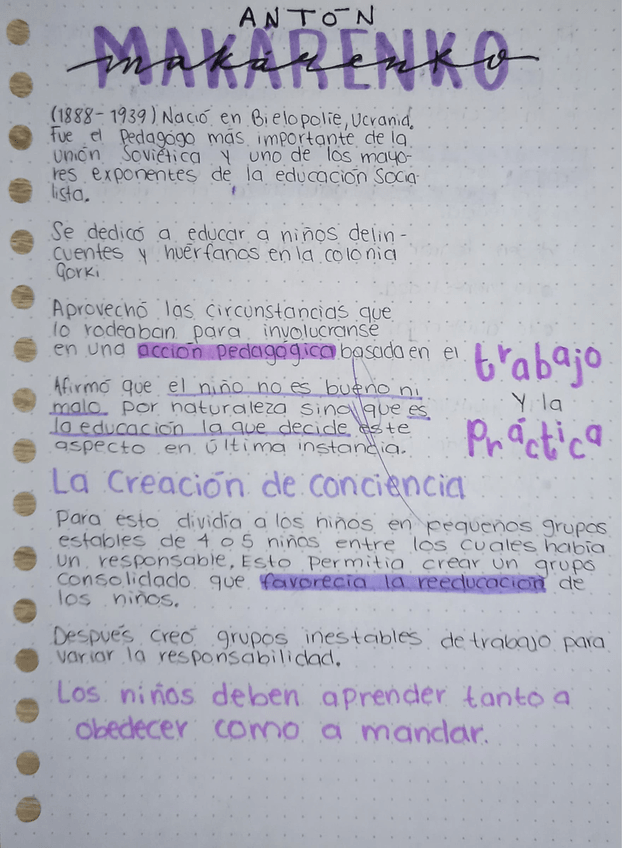 ANTÓN
MAKARENKO
makárenko
(1888-1939) Nació en Bielopolie, Ucrania.
Fue el Pedagógo más importante de la
unión Soviética y uno de los mayo-
res exponentes de la educación Socia
lista.
Se dedicó a educar a niños delin-
cuentes y huérfanos en la colonia
Gorki
Aprovechó las circunstancias que
lo rodeaban para involucranse
en una acción pedagógica basada en el trabajo
y la
Práctica
Afirmó que el niño no es bueno ni
malo por naturaleza sino que es
la educación la que decide este
aspecto en última instancia.
La Creación de conciencia
Para esto dividía a los niños en pequeños grupos
estables de 4 o 5 niños entre los cuales había
un responsable. Esto permitía crear un grupo
consolidado que favorecía la reeducación de
los niños.
Después creó grupos inestables de trabajo para
variar la responsabilidad.
Los niños deben aprender tanto a
obedecer como a mandar.